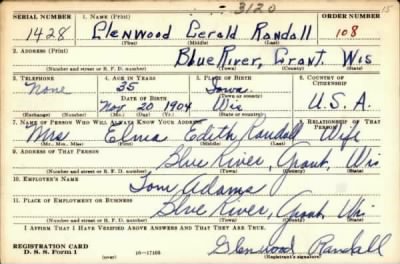 - 3120
15
SERIAL NUMBER 1. NAME (Print) ORDER NUMBER
1428 Glenwood Gerald Randall 108
(First) (Middle) (Last)
2. ADDRESS (Print)
Blue River, Grant, Wis
(Number and street or R. F. D. number) (Town) (County) (State)
3. TELEPHONE 4. AGE IN YEARS 5. PLACE OF BIRTH 6. COUNTRY OF CITIZENSHIP
None 35 Iowa
DATE OF BIRTH (Town or county)
Nov 20 1904 Wis U.S.A.
(Exchange) (Number) (Mo.) (Day) (Yr.) (State or country)
7. NAME OF PERSON WHO WILL ALWAYS KNOW YOUR ADDRESS 8. RELATIONSHIP OF THAT PERSON
Mrs Elma Edith Randall Wife
(Mr., Mrs., Miss) (First) (Middle) (Last)
9. ADDRESS OF THAT PERSON
Blue River, Grant, Wis
(Number and street or R. F. D. number) (Town) (County) (State)
10. EMPLOYER'S NAME
Tom Adams
11. PLACE OF EMPLOYMENT OR BUSINESS
Blue River, Grant, Wis
(Number and street or R. F. D. number) (Town) (County) (State)
I AFFIRM THAT I HAVE VERIFIED ABOVE ANSWERS AND THAT THEY ARE TRUE.
Glenwood Randall
REGISTRATION CARD
D. S. S. Form 1 (over) 16—17105 (Registrant's signature)